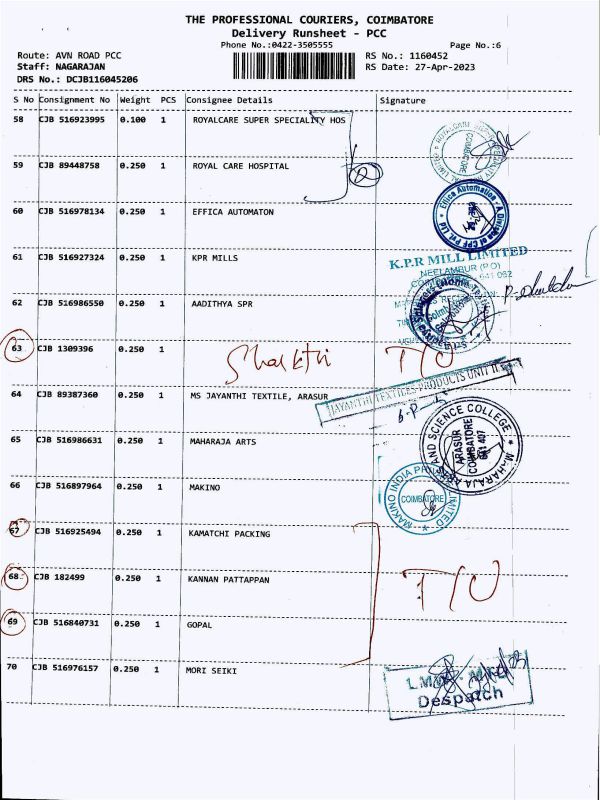 THE PROFESSIONAL COURIERS, COIMBATORE
Delivery Runsheet - PCC
Phone No.:0422-3505555 Page No.:6
Route: AVN ROAD PCC RS No.: 1160452
Staff: NAGARAJAN RS Date: 27-Apr-2023
DRS No.: DCJB116045206
S No Consignment No Weight PCS Consignee Details Signature
58 CJB 516923995 0.100 1 ROYALCARE SUPER SPECIALITY HOS
COIMBATORE
59 CJB 89448758 0.250 1 ROYAL CARE HOSPITAL
2
60 CJB 516978134 0.250 1 EFFICA AUTOMATON
Effica Automation - A Division of CPF Pvt. Ltd
61 CJB 516927324 0.250 1 KPR MILLS
K.P.R MILL LIMITED
NEELAMBUR (P.O)
641 062
62 CJB 516986550 0.250 1 AADITHYA SPR
63 CJB 1309396 0.250 1 Shakthi T/O
64 CJB 89387360 0.250 1 MS JAYANTHI TEXTILE, ARASUR
JAYANTHI TEXTILES PRODUCTS UNIT II
65 CJB 516986631 0.250 1 MAHARAJA ARTS
MAHARAJA ARTS AND SCIENCE COLLEGE
ARASUR
COIMBATORE
641 407
66 CJB 516897964 0.250 1 MAKINO
MAKINO INDIA PRIVATE LIMITED
COIMBATORE
67 CJB 516925494 0.250 1 KAMATCHI PACKING
68 CJB 182499 0.250 1 KANNAN PATTAPPAN T/O
69 CJB 516840731 0.250 1 GOPAL
70 CJB 516976157 1 0.250 MORI SEIKI
Despatch